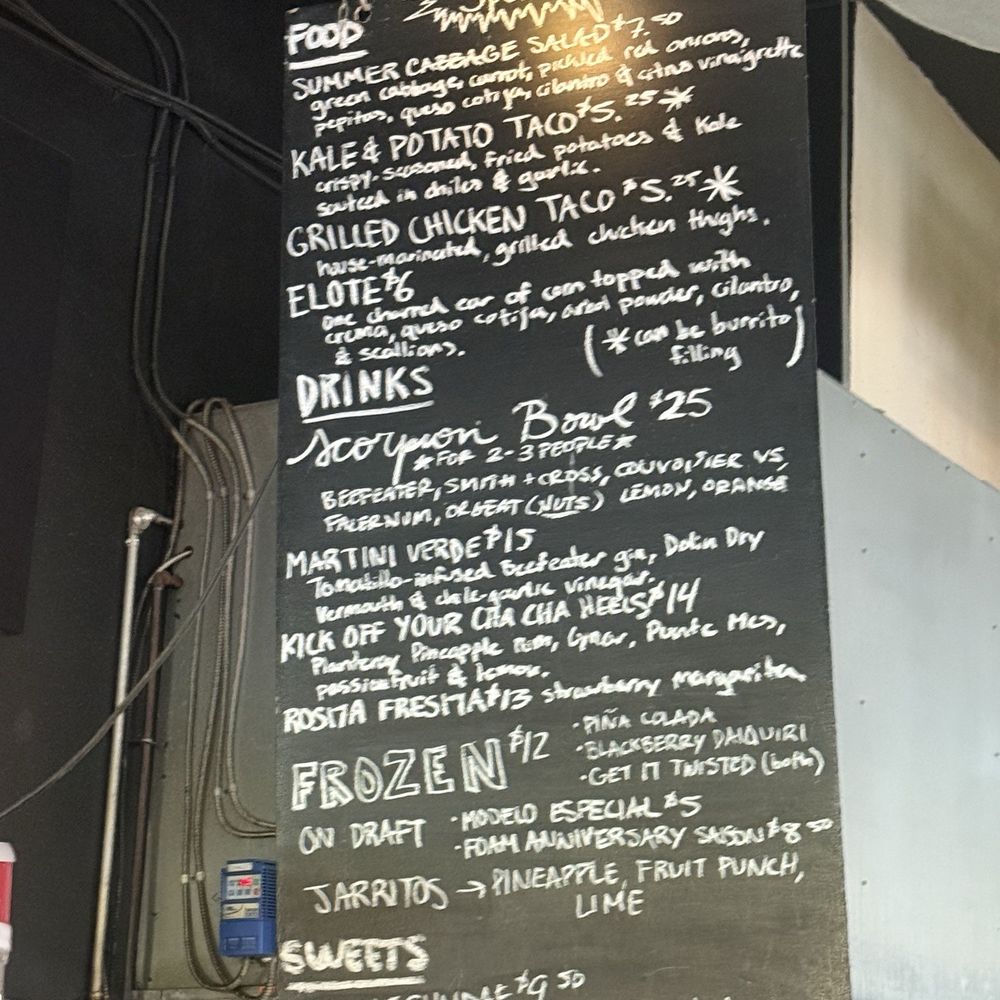 FOOD
SUMMER CABBAGE SALAD $7.50
green cabbage, carrot, pickled red onions,
pepitas, queso cotija, cilantro & citrus vinaigrette
KALE & POTATO TACO $5.25 *
crispy-seasoned, fried potatoes & kale
sauteed in chiles & garlic.
GRILLED CHICKEN TACO $5.25 *
house-marinated, grilled chicken thighs.
ELOTE $6
one charred ear of corn topped with
crema, queso cotija, arbol powder, cilantro,
& scallions.
(* can be burrito
filling)
DRINKS
Scorpion Bowl $25
*FOR 2-3 PEOPLE*
BEEFEATER, SMITH + CROSS, COUVOISIER VS,
FALERNUM, ORGEAT (NUTS) LEMON, ORANGE
MARTINI VERDE $15
Tomatillo-infused Beefeater gin, Dolin Dry
Vermouth & chile-garlic vinegar.
KICK OFF YOUR CHA CHA HEELS $14
Planteray Pineapple rum, Cynar, Punt e Mes,
passionfruit & lemon.
ROSITA FRESITA $13 strawberry margarita
FROZEN $12
· PIÑA COLADA
· BLACKBERRY DAIQUIRI
· GET IT TWISTED (both)
ON DRAFT · MODELO ESPECIAL $5
· FOAM ANNIVERSARY SAISON $8.50
JARRITOS → PINEAPPLE, FRUIT PUNCH,
LIME
SWEETS
$9.50